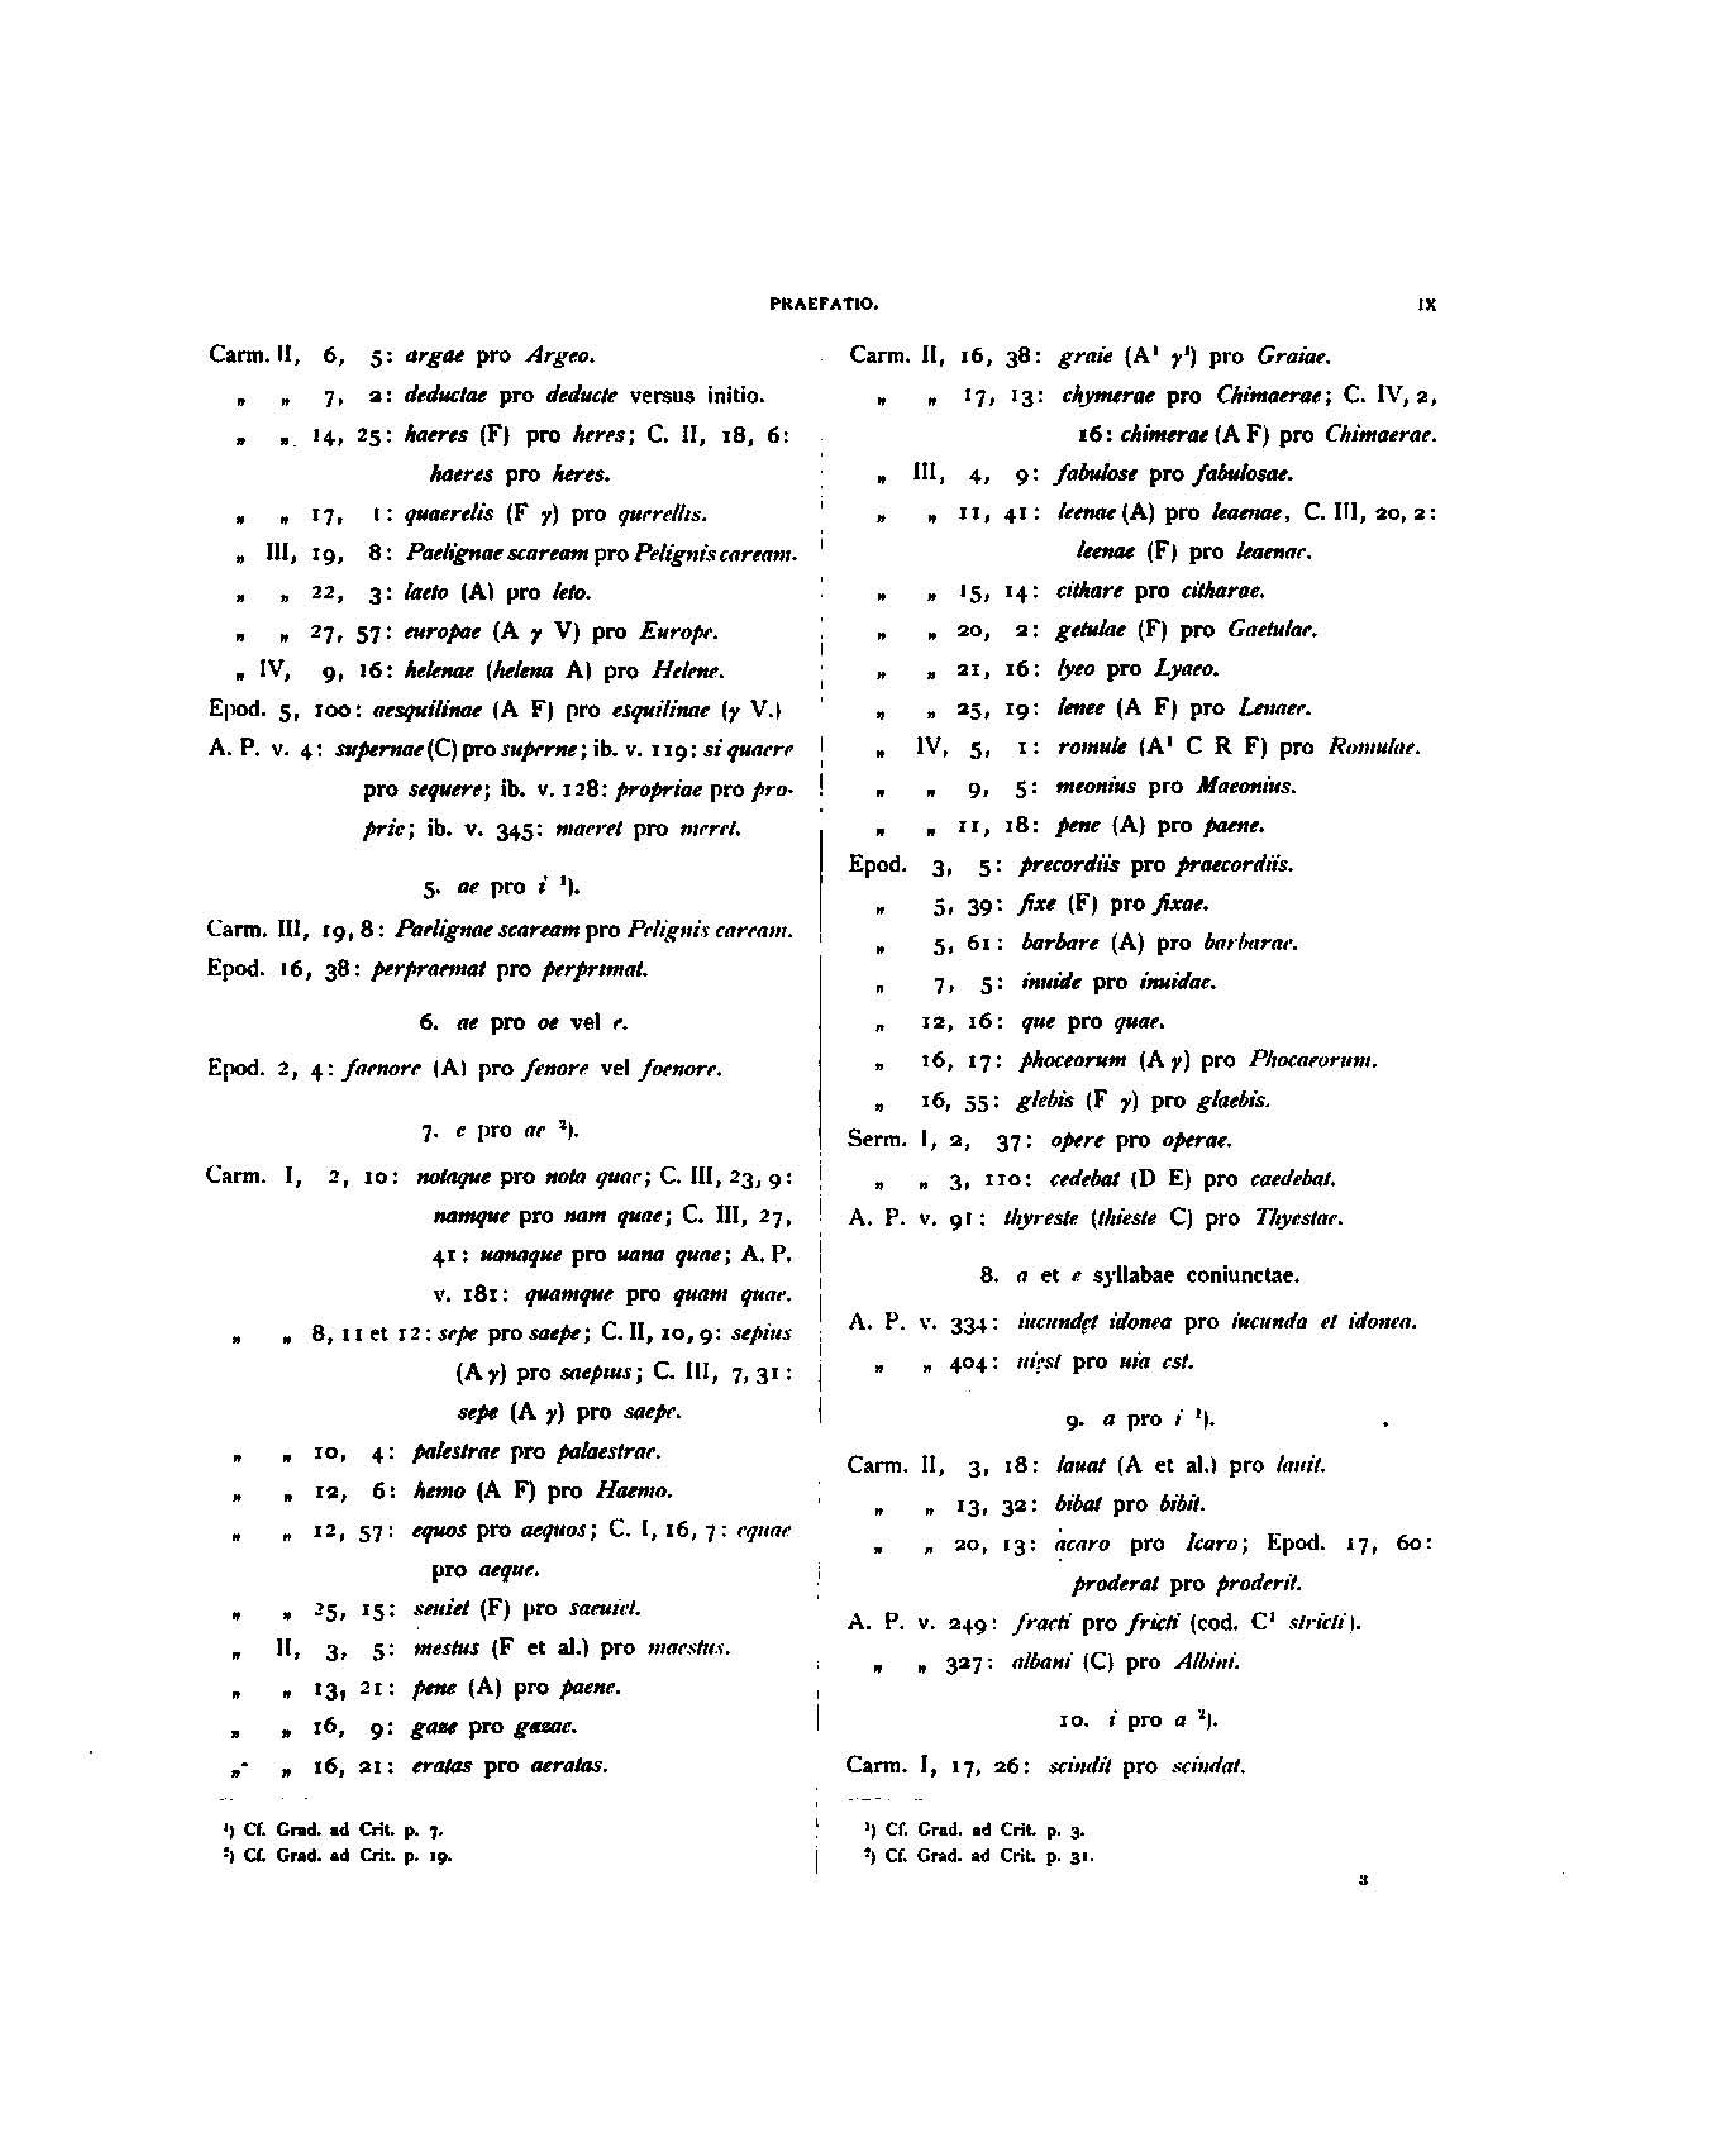 PRAEFATIO. IX
Carm. II, 6, 5: argae pro Argeo.
„ „ 7, 2: deductae pro deducte versus initio.
„ „ 14, 25: haeres (F) pro heres; C. II, 18, 6:
haeres pro heres.
„ „ 17, 1: quaerelis (F γ) pro querellis.
„ III, 19, 8: Paelignae scaream pro Pelignis caream.
„ „ 22, 3: laeto (A) pro leto.
„ „ 27, 57: europae (A γ V) pro Europe.
„ IV, 9, 16: helenae (helena A) pro Helene.
Epod. 5, 100: aesquilinae (A F) pro esquilinae (γ V.)
A. P. v. 4: supernae (C) pro superne; ib. v. 119: si quaere
pro sequere; ib. v. 128: propriae pro pro-
prie; ib. v. 345: maeret pro meret.
5. ae pro i ¹).
Carm. III, 19, 8: Paelignae scaream pro Pelignis caream.
Epod. 16, 38: perpraemat pro perprimat.
6. ae pro oe vel e.
Epod. 2, 4: faenore (A) pro fenore vel foenore.
7. e pro ae ²).
Carm. I, 2, 10: notaque pro nota quae; C. III, 23, 9:
namque pro nam quae; C. III, 27,
41: uanaque pro uana quae; A. P.
v. 181: quamque pro quam quae.
„ „ 8, 11 et 12: sepe pro saepe; C. II, 10, 9: sepius
(A γ) pro saepius; C. III, 7, 31:
sepe (A γ) pro saepe.
„ „ 10, 4: palestrae pro palaestrae.
„ „ 12, 6: hemo (A F) pro Haemo.
„ „ 12, 57: equos pro aequos; C. I, 16, 7: equae
pro aeque.
„ „ 25, 15: seuiet (F) pro saeuiet.
„ II, 3, 5: mestus (F et al.) pro maestus.
„ „ 13, 21: pene (A) pro paene.
„ „ 16, 9: gaze pro gazae.
„ „ 16, 21: eratas pro aeratas.
¹) Cf. Grad. ad Crit. p. 7.
²) Cf. Grad. ad Crit. p. 19.
Carm. II, 16, 38: graie (A¹ γ¹) pro Graiae.
„ „ 17, 13: chymerae pro Chimaerae; C. IV, 2,
16: chimerae (A F) pro Chimaerae.
„ III, 4, 9: fabulose pro fabulosae.
„ „ 11, 41: leenae (A) pro leaenae, C. III, 20, 2:
leenae (F) pro leaenae.
„ „ 15, 14: cithare pro citharae.
„ „ 20, 2: getulae (F) pro Gaetulae.
„ „ 21, 16: lyeo pro Lyaeo.
„ „ 25, 19: lenee (A F) pro Lenaee.
„ IV, 5, 1: romule (A¹ C R F) pro Romulae.
„ „ 9, 5: meonius pro Maeonius.
„ „ 11, 18: pene (A) pro paene.
Epod. 3, 5: precordiis pro praecordiis.
„ 5, 39: fixe (F) pro fixae.
„ 5, 61: barbare (A) pro barbarae.
„ 7, 5: inuide pro inuidae.
„ 12, 16: que pro quae.
„ 16, 17: phoceorum (A γ) pro Phocaeorum.
„ 16, 55: glebis (F γ) pro glaebis.
Serm. I, 2, 37: opere pro operae.
„ „ 3, 110: cedebat (D E) pro caedebat.
A. P. v. 91: thyreste (thieste C) pro Thyestae.
8. a et e syllabae coniunctae.
A. P. v. 334: iucundęt idonea pro iucunda et idonea.
„ „ 404: uięst pro uia est.
9. a pro i ¹).
Carm. II, 3, 18: lauat (A et al.) pro lauit.
„ „ 13, 32: bibat pro bibit.
„ „ 20, 13: acaro pro Icaro; Epod. 17, 60:
proderat pro proderit.
A. P. v. 249: fracti pro fricti (cod. C¹ stricti).
„ „ 327: albani (C) pro Albini.
10. i pro a ²).
Carm. I, 17, 26: scindit pro scindat.
¹) Cf. Grad. ad Crit. p. 3.
²) Cf. Grad. ad Crit. p. 31.
3